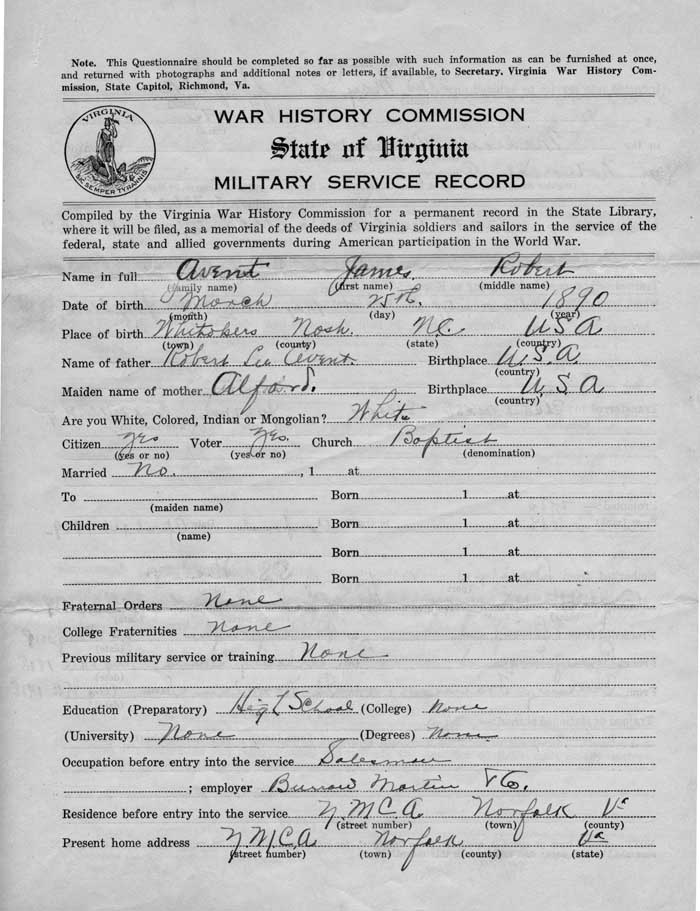 Note. This Questionnaire should be completed so far as possible with such information as can be furnished at once,
and returned with photographs and additional notes or letters, if available, to Secretary, Virginia War History Com-
mission, State Capitol, Richmond, Va.
VIRGINIA
SIC SEMPER TYRANNIS
WAR HISTORY COMMISSION
State of Virginia
MILITARY SERVICE RECORD
Compiled by the Virginia War History Commission for a permanent record in the State Library,
where it will be filed, as a memorial of the deeds of Virginia soldiers and sailors in the service of the
federal, state and allied governments during American participation in the World War.
Name in full Avent James Robert
(family name) (first name) (middle name)
Date of birth March 25th. 1890
(month) (day) (year)
Place of birth Whitakers Nash. NC. USA
(town) (county) (state) (country)
Name of father Robert Lee Avent. Birthplace U.S.A
(country)
Maiden name of mother Alford. Birthplace U.S.A
(country)
Are you White, Colored, Indian or Mongolian? White
Citizen Yes Voter Yes. Church Baptist
(yes or no) (yes or no) (denomination)
Married No. , 1 at
To Born 1 at
(maiden name)
Children Born 1 at
(name)
Born 1 at
Born 1 at
Fraternal Orders None
College Fraternities None
Previous military service or training None
Education (Preparatory) High School (College) None
(University) None (Degrees) None
Occupation before entry into the service Salesman
; employer Burrow Martin & Co.
Residence before entry into the service Y.M.C.A. Norfolk Va
(street number) (town) (county)
Present home address Y.M.C.A. Norfolk Va
(street number) (town) (county) (state)